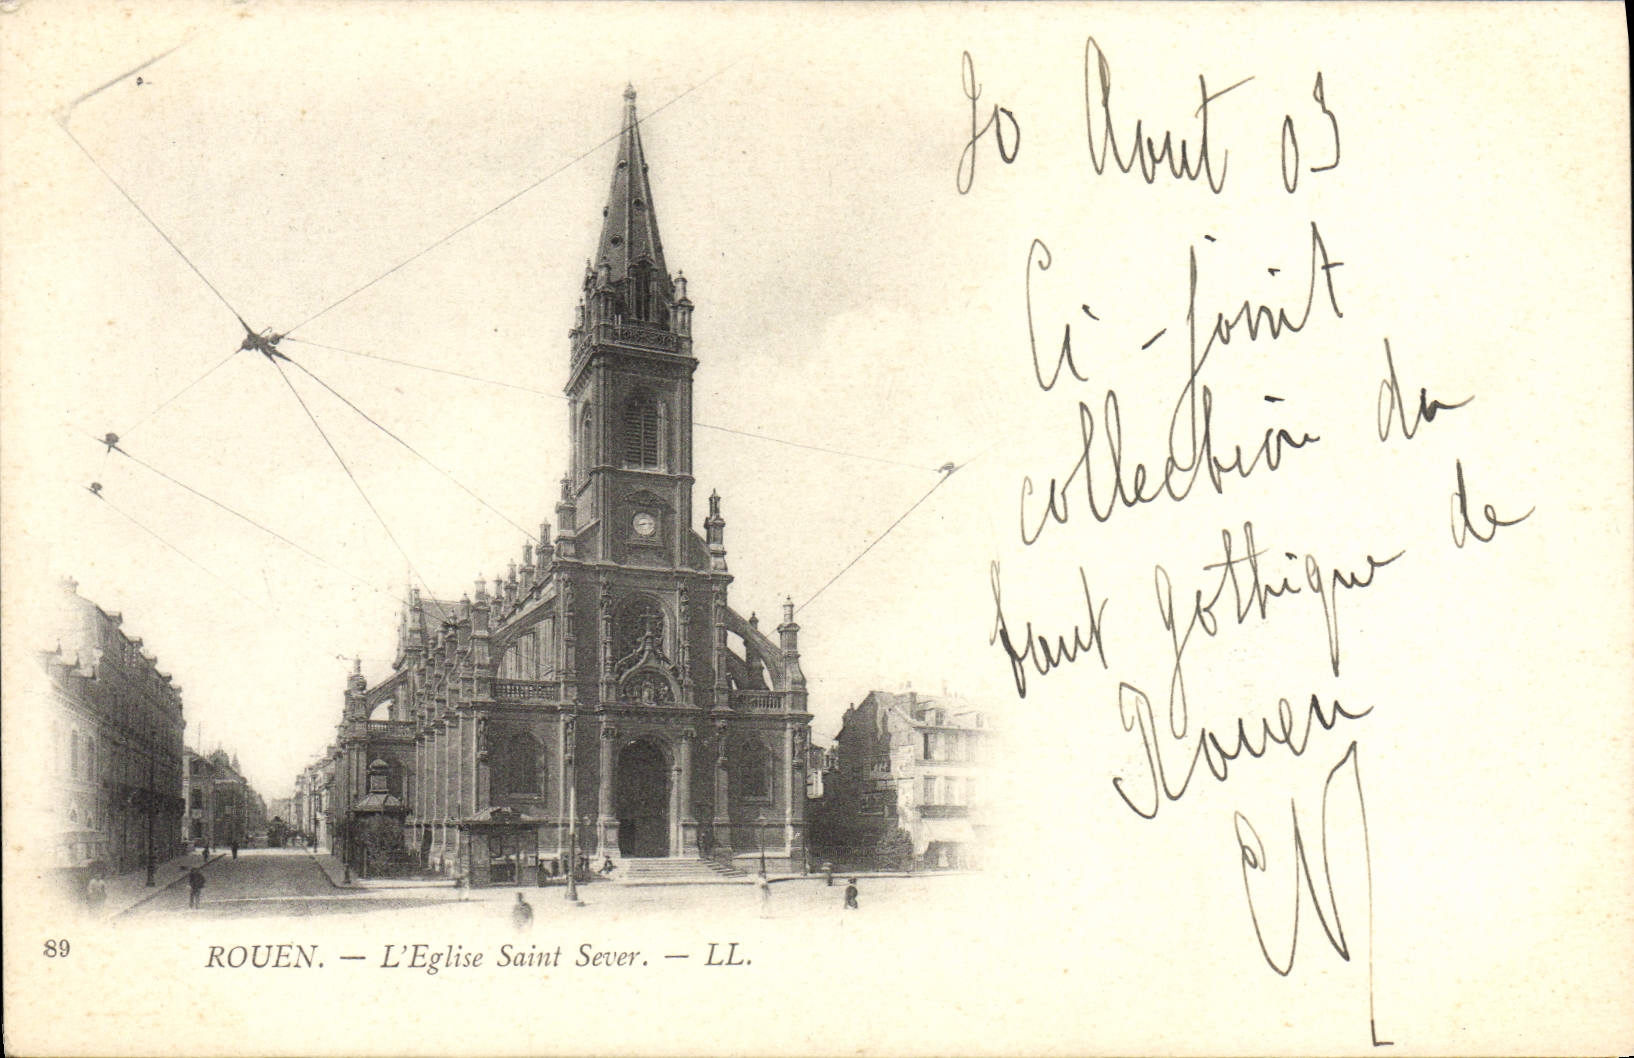 30 Aout 03
Ci-joint
collection du
haut gothique de
Rouen
89 ROUEN. — L'Eglise Saint Sever. — LL.